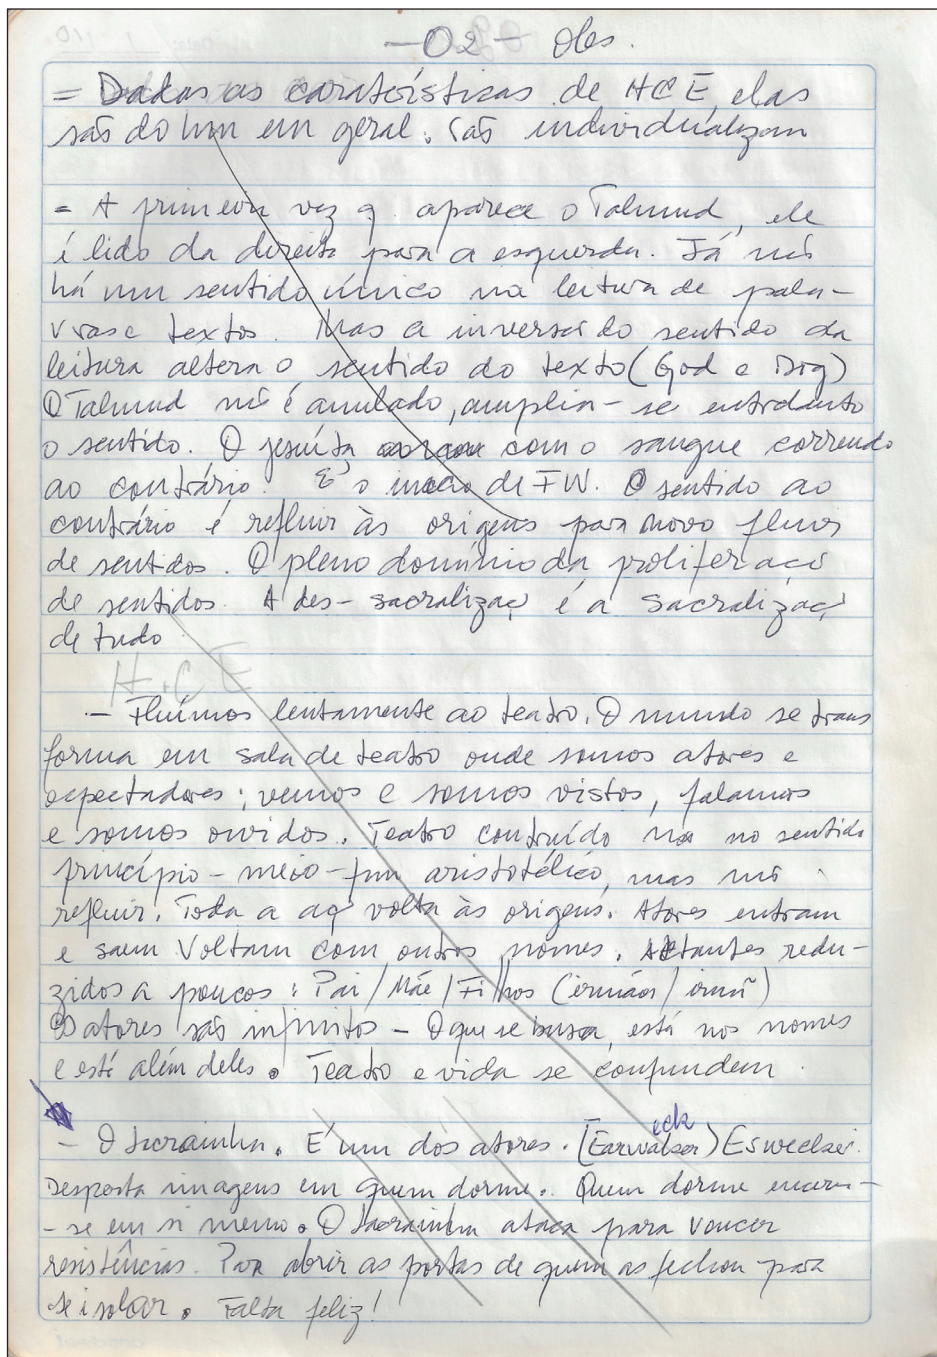 -02- Obs.
= Dadas as caraterísticas de HCE, elas
são do hm em geral. individualizam
= A primeira vez q. aparece o Talmud, ele
é lido da direita para a esquerda. Já não
há um sentido único na leitura de pala-
vras e textos. Mas a inversão do sentido da
leitura altera o sentido do texto (God e Dog)
O Talmud não é anulado, amplia-se entretanto
o sentido. O jesuíta com o sangue correndo
ao contrário. É o início de FW. O sentido ao
contrário é refluir às origens para novo fluxo
de sentidos. O pleno domínio da proliferação
de sentidos. A des-sacralizaç é a sacralizaç
de tudo.
H.C E
- Fluímos lentamente ao teatro. O mundo se trans
forma em sala de teatro onde somos atores e
espectadores; vemos e somos vistos, falamos
e somos ouvidos. Teatro construído no sentido
princípio-meio-fim aristotélico, mas
refluir. Toda a aç volta às origens. Atores entram
e saem Voltam com outros nomes. Actantes redu-
zidos a poucos: Pai/Mãe/Filhos (irmãos/irmã)
Os atores são infinitos - O que se busca, está nos nomes
e está além deles. Teatro e vida se confundem.
- O lacrainha. É um dos atores. (Earwicker)
Desperta imagens em quem dorme. Quem dorme encerra-
-se em si memo. O lacrainha ataca para vencer
resistências. Para abrir as portas de quem as fechou para
se isolar. Falta feliz!